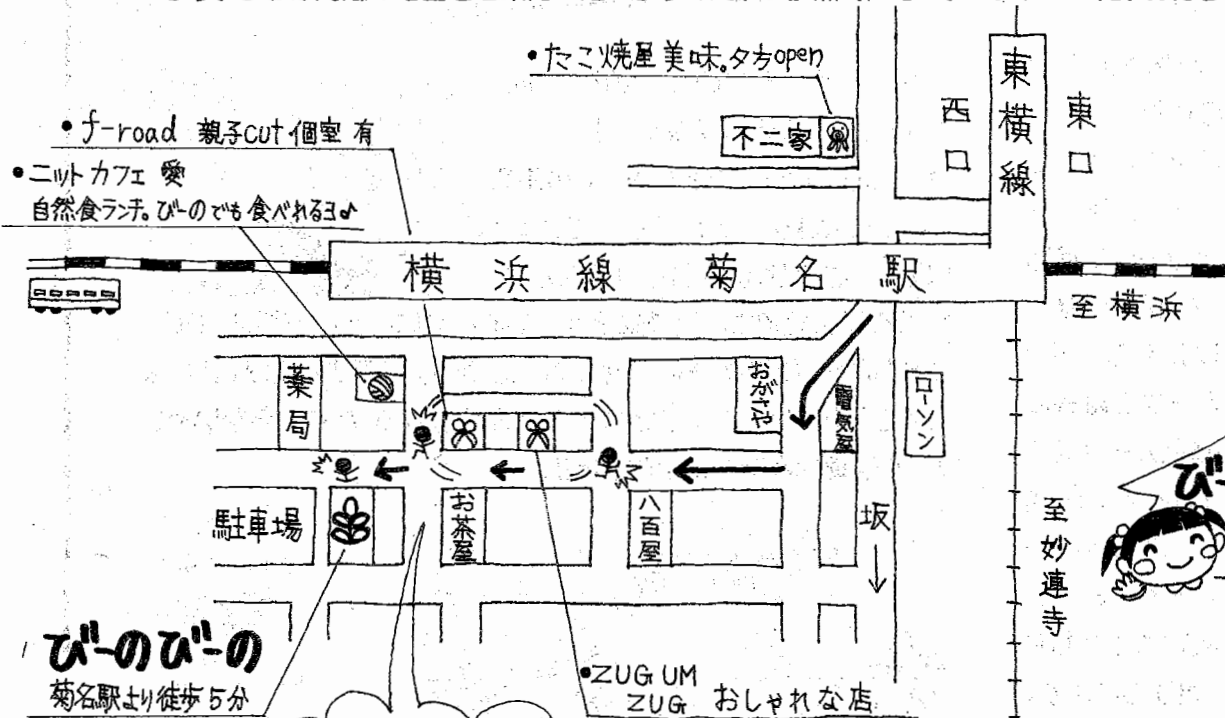 •たこ焼屋美味。夕方open
不二家
西口
東横線
東口
•f-road 親子cut個室有
•ニットカフェ 愛
自然食ランチ。びーのでも食べれるヨ♪
横浜線 菊名駅
至横浜
薬局
おがさや
電気屋
ローソン
駐車場
お茶屋
八百屋
坂
至妙連寺
びーのびーの
菊名駅より徒歩5分
•ZUG UM
ZUG おしゃれな店